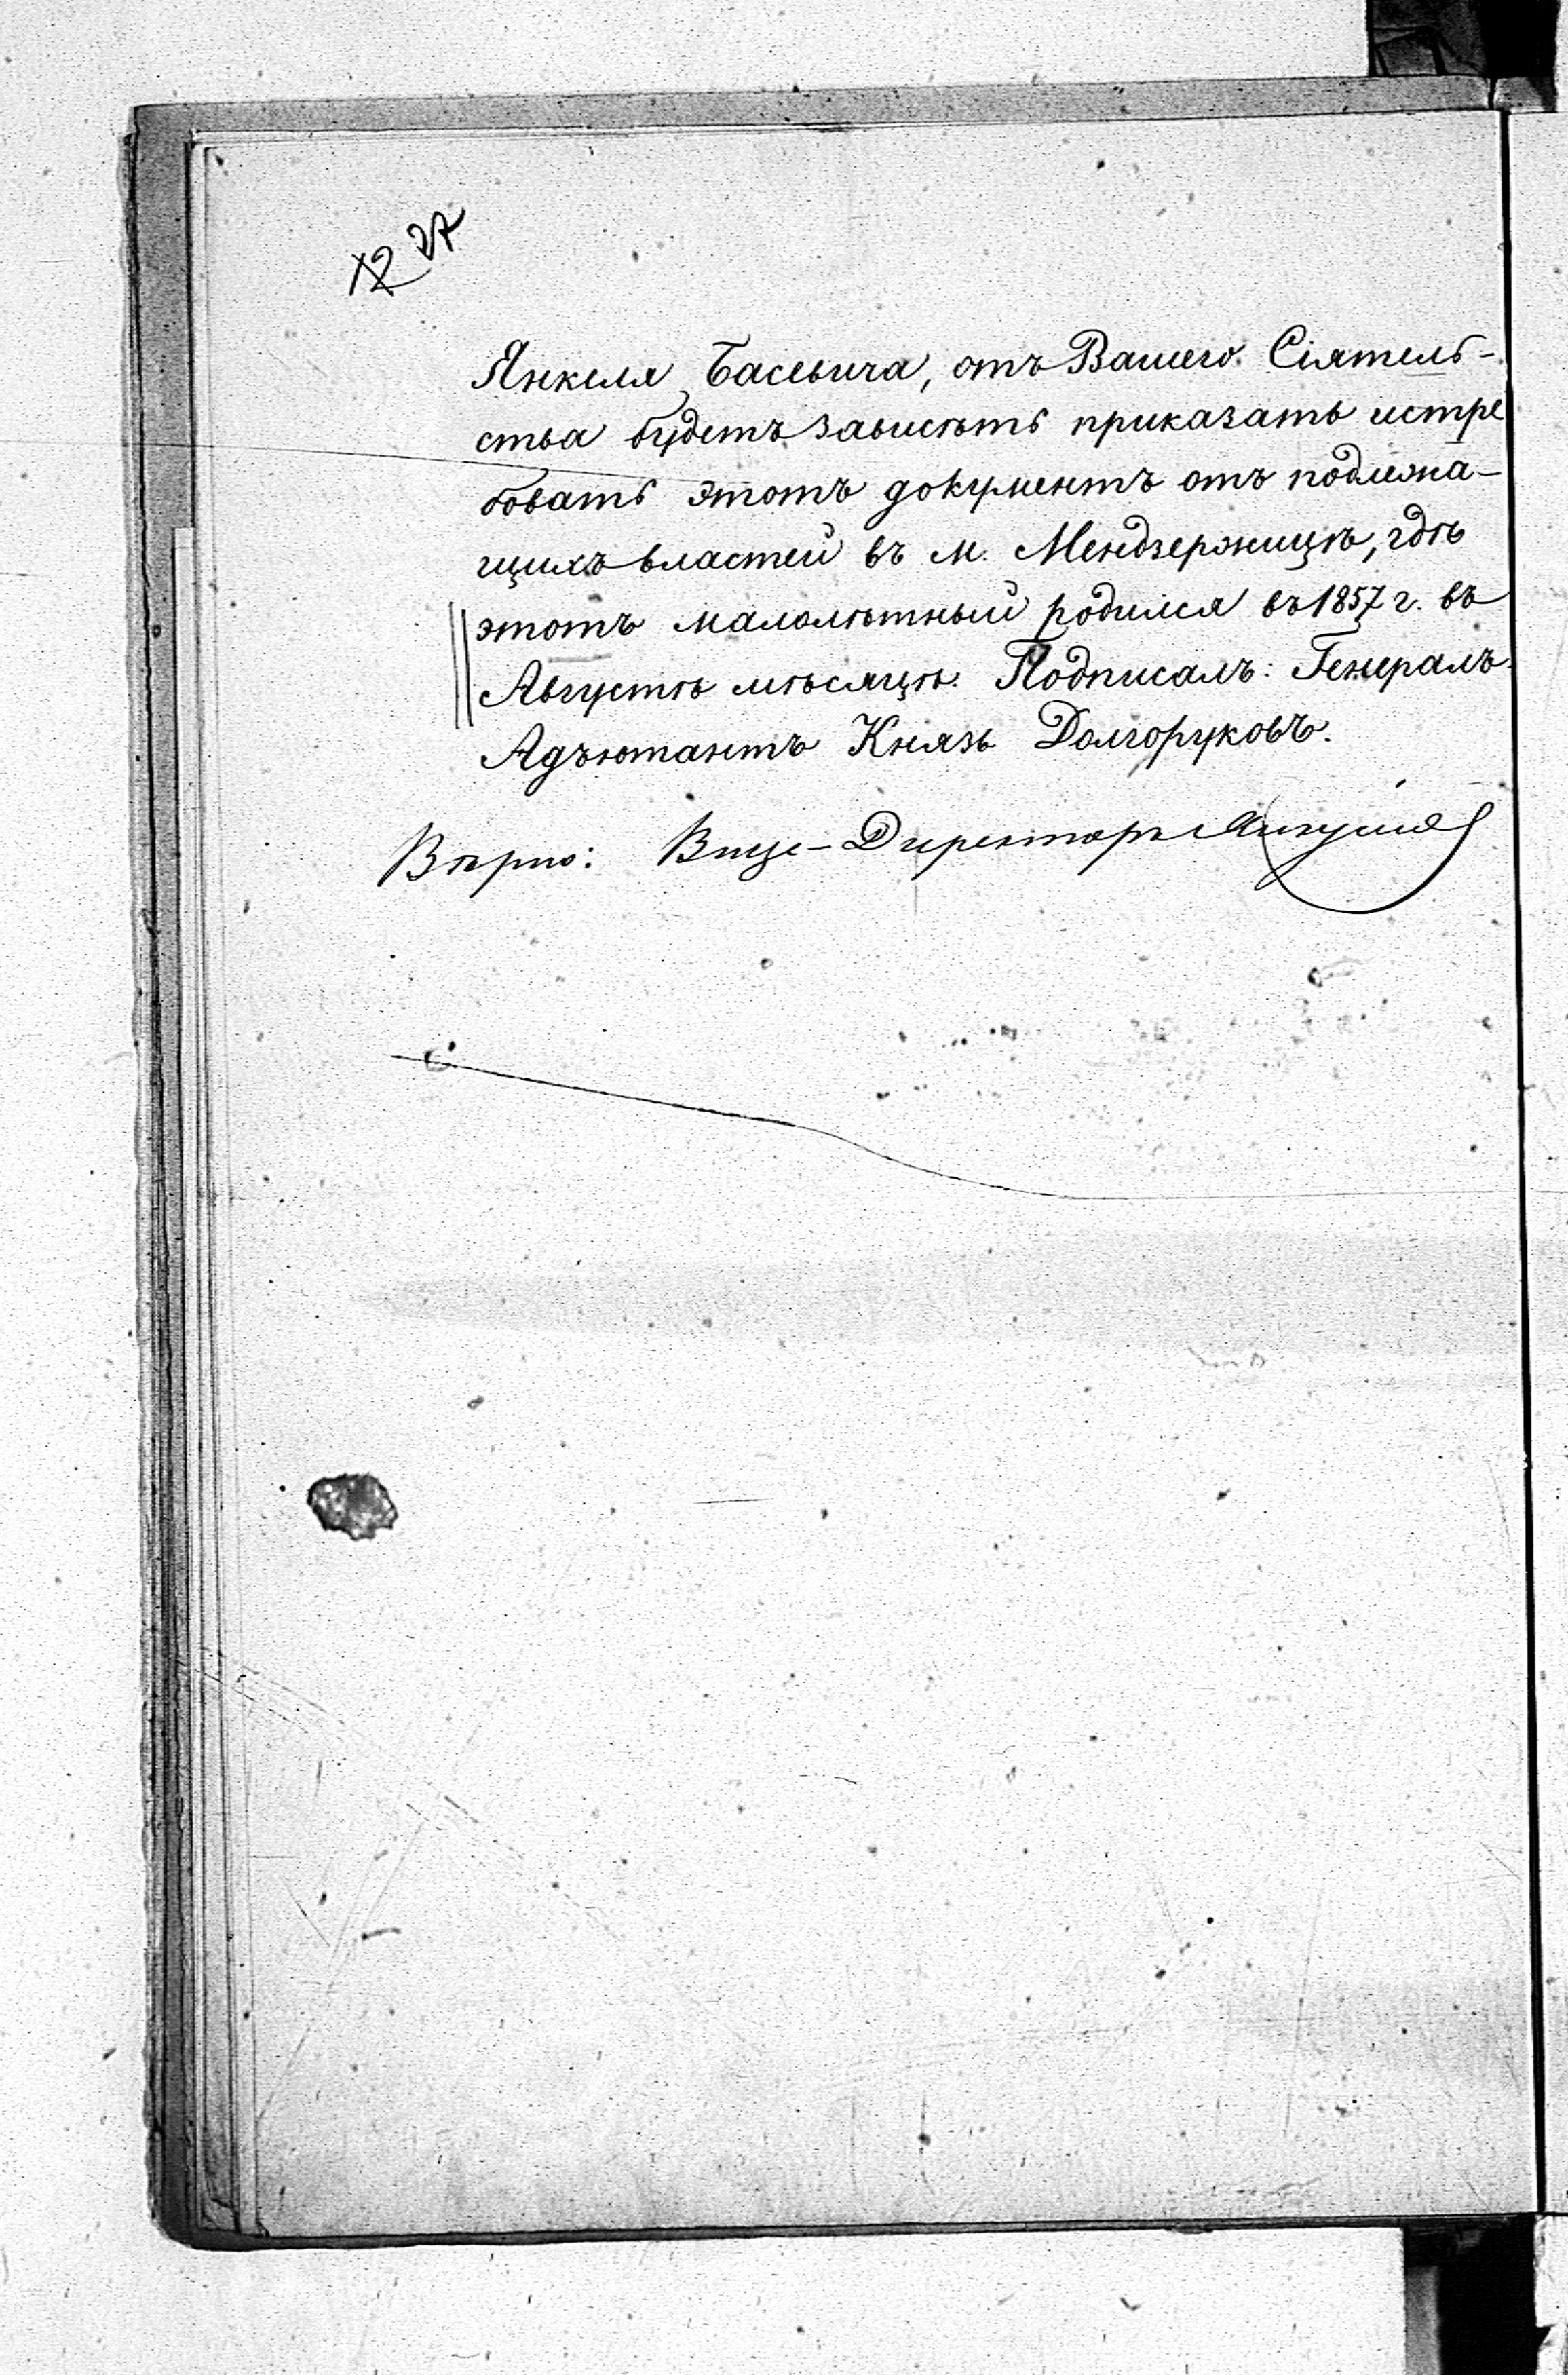 12 27
Янкеля Басевича, отъ Вашего Сіятель-
ства будетъ зависѣть приказать истре
бовать этотъ документъ отъ подлежа-
щихъ властей въ м. Мендзержицѣ, гдѣ
этотъ малолѣтный родился въ 1857 г. въ
Августѣ мѣсяцѣ. Подписалъ: Генералъ
Адъютантъ Князь Долгоруковъ.
Вѣрно: Вице-Директоръ